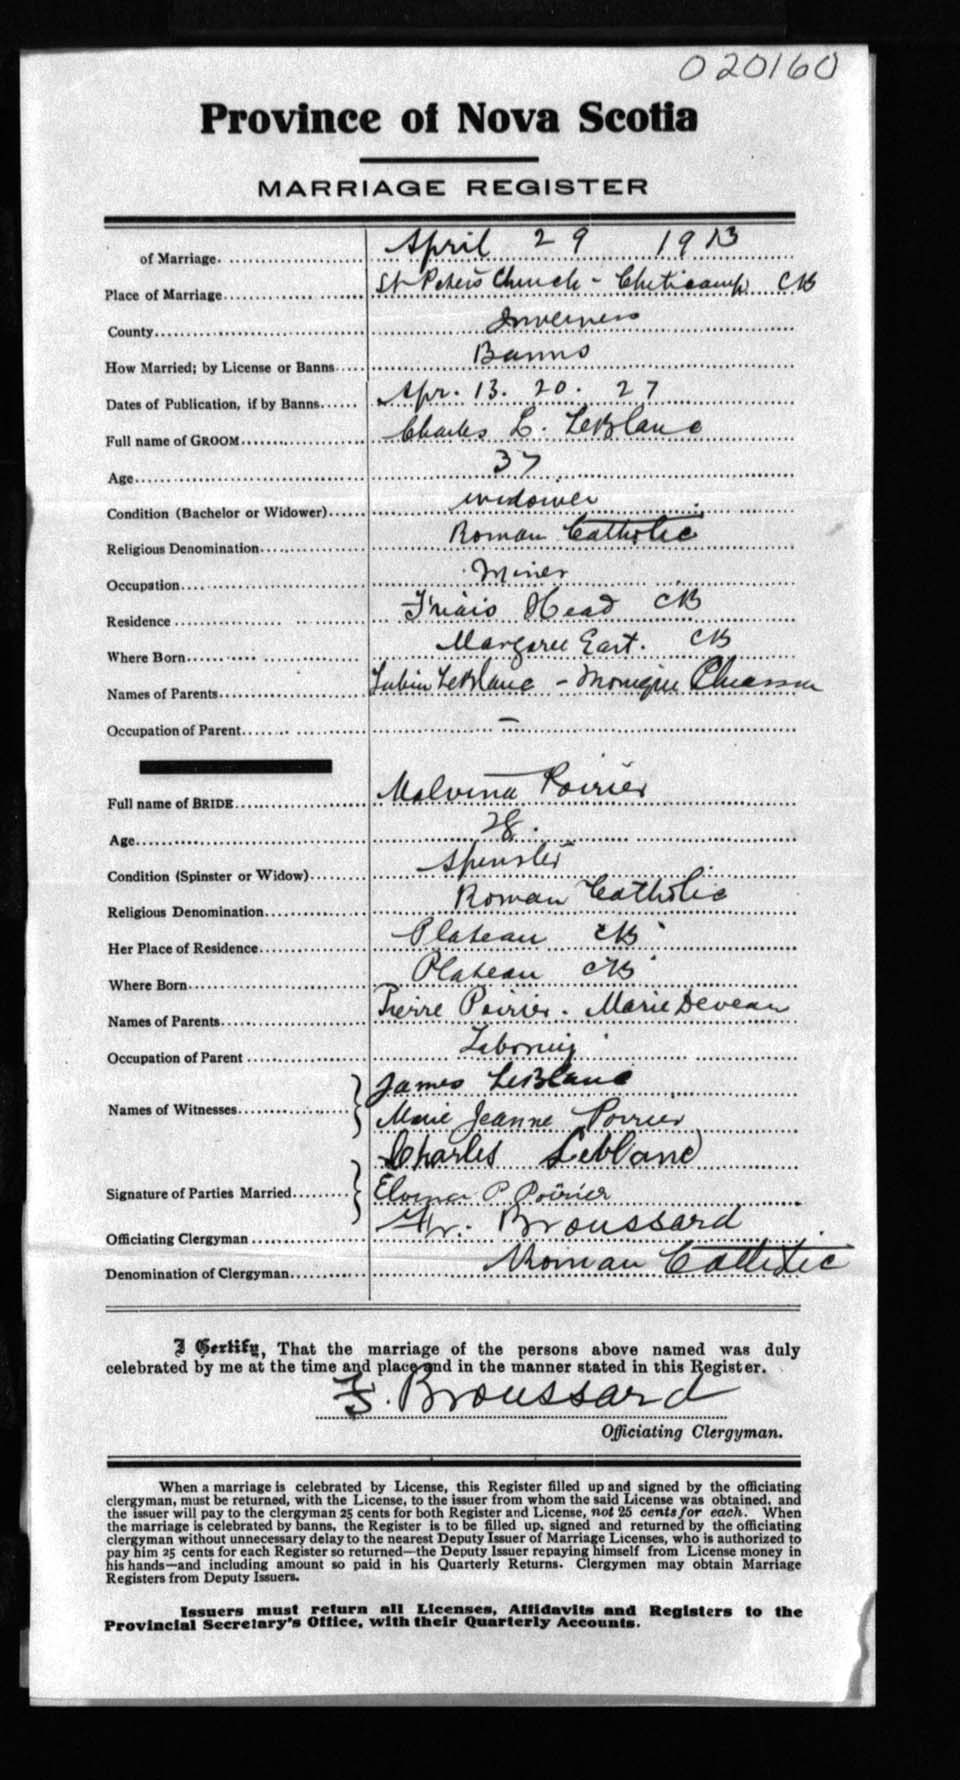 020160
Province of Nova Scotia
MARRIAGE REGISTER
of Marriage. April 29 1913
Place of Marriage St Peters Church - Cheticamp CB
County Inverness
How Married; by License or Banns Banns
Dates of Publication, if by Banns Apr. 13. 20. 27
Full name of GROOM Charles L. LeBlanc
Age 37
Condition (Bachelor or Widower) widower
Religious Denomination Roman Catholic
Occupation Miner
Residence Friars Head CB
Where Born Margaree East. CB
Names of Parents Lubin LeBlanc - Monique Chiasson
Occupation of Parent —
Full name of BRIDE Malvina Poirier
Age 28.
Condition (Spinster or Widow) Spinster
Religious Denomination Roman Catholic
Her Place of Residence Plateau CB
Where Born Plateau CB
Names of Parents Pierre Poirier. Marie Deveau
Occupation of Parent
Names of Witnesses James LeBlanc
Marie Jeanne Poirier
Charles Leblanc
Signature of Parties Married Elvina P Poirier
Officiating Clergyman Fr. Broussard
Denomination of Clergyman Roman Catholic
I Certify, That the marriage of the persons above named was duly
celebrated by me at the time and place and in the manner stated in this Register.
Broussard
Officiating Clergyman.
When a marriage is celebrated by License, this Register filled up and signed by the officiating
clergyman, must be returned, with the License, to the issuer from whom the said License was obtained, and
the issuer will pay to the clergyman 25 cents for both Register and License, not 25 cents for each. When
the marriage is celebrated by banns, the Register is to be filled up, signed and returned by the officiating
clergyman without unnecessary delay to the nearest Deputy Issuer of Marriage Licenses, who is authorized to
pay him 25 cents for each Register so returned—the Deputy Issuer repaying himself from License money in
his hands—and including amount so paid in his Quarterly Returns. Clergymen may obtain Marriage
Registers from Deputy Issuers.
Issuers must return all Licenses, Affidavits and Registers to the
Provincial Secretary's Office, with their Quarterly Accounts.